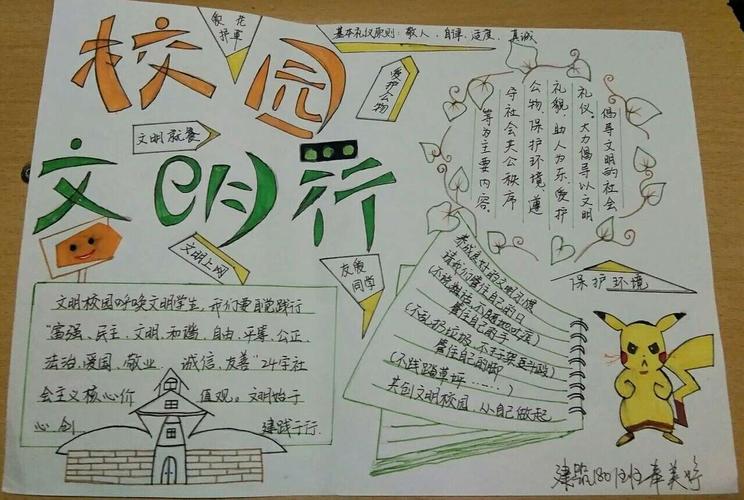 校园
文明行
爱花
护草
基本礼仪原则：敬人、自律、适度、真诚
爱护公物
文明就餐
文明上网
友爱
同学
倡导文明的社会
礼仪。大力倡导以文明
礼貌，助人为乐，爱护
公物，保护环境，遵
守社会夫公秩序
等为主要内容。
保护环境
文明校园呼唤文明学生，我们要自觉践行
"富强、民主、文明、和谐、自由、平等、公正
法治、爱国、敬业、诚信、友善"24字社
会主义核心价值观。文明始于
心，创建践于行.
养成良好的文明习惯
请我们管住自己的口
(不说脏话，不随地吐痰)
管住自己的手
(不乱扔垃圾，不打架斗殴)
管住自己的脚
(不践踏草坪……)
共创文明校园，从自己做起